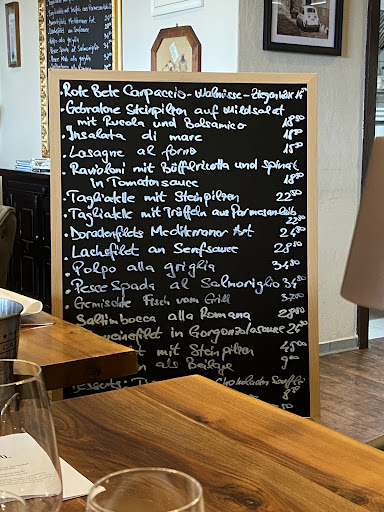 Rote Bete Carpaccio - Walnüsse - Ziegenkäse
Gebratene Steinpilzen auf Wildsalat
mit Rucola und Balsamico 18.80
Insalata di mare 18.80
Lasagne al forno 15.50
Ravioloni mit Büffelricotta und Spinat
in Tomatensauce 18.80
Tagliatelle mit Steinpilzen 22.80
Tagliatelle mit Trüffeln aus Parmesanlaib
22.80
Doradenfilets Mediterraner Art 24.80
Lachsfilet an Senfsauce 28.80
Polpo alla griglia 34.80
Pesce Spada al Salmoriglio 31.80
Gemischte Fisch vom Grill 37.00
Saltimbocca alla Romana 28.80
Schweinefilet in Gorgonzolasauce 24.80
mit Steinpilzen
als Beilage
Desserts: Schokoladen Soufflé